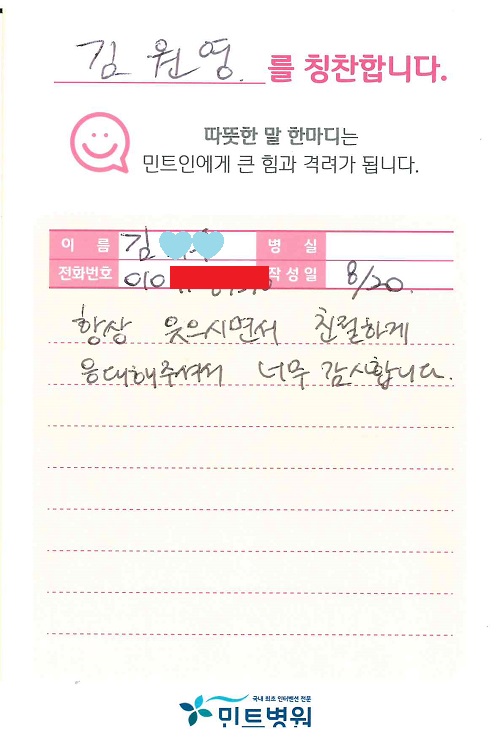 김원영 를 칭찬합니다.
따뜻한 말 한마디는
민트인에게 큰 힘과 격려가 됩니다.
이 름 김 병 실
전화번호 010 작성일 8/20.
항상 웃으시면서 친절하게
응대해주셔서 너무 감사합니다.
국내 최초 인터벤션 전문
민트병원